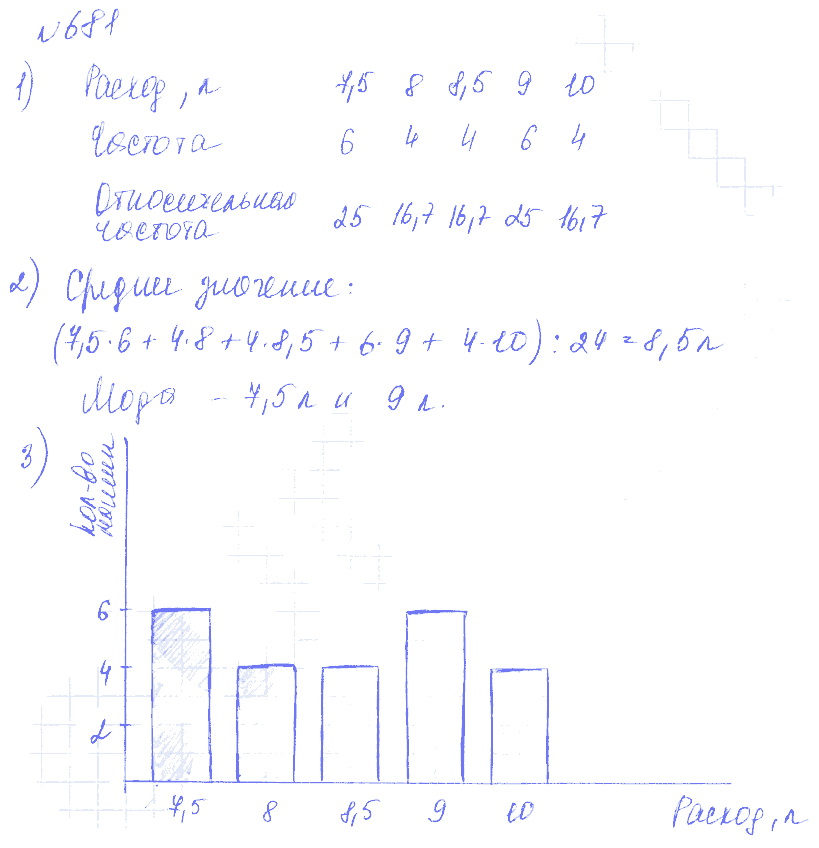 №681
1) Расход, л 7,5 8 8,5 9 10
Частота 6 4 4 6 4
Относительная
частота 25 16,7 16,7 25 16,7
2) Среднее значение:
(7,5·6 + 4·8 + 4·8,5 + 6·9 + 4·10) : 24 = 8,5л
Мода – 7,5л и 9л.
3)
кол-во
машин
6
4
2
7,5 8 8,5 9 10 Расход, л